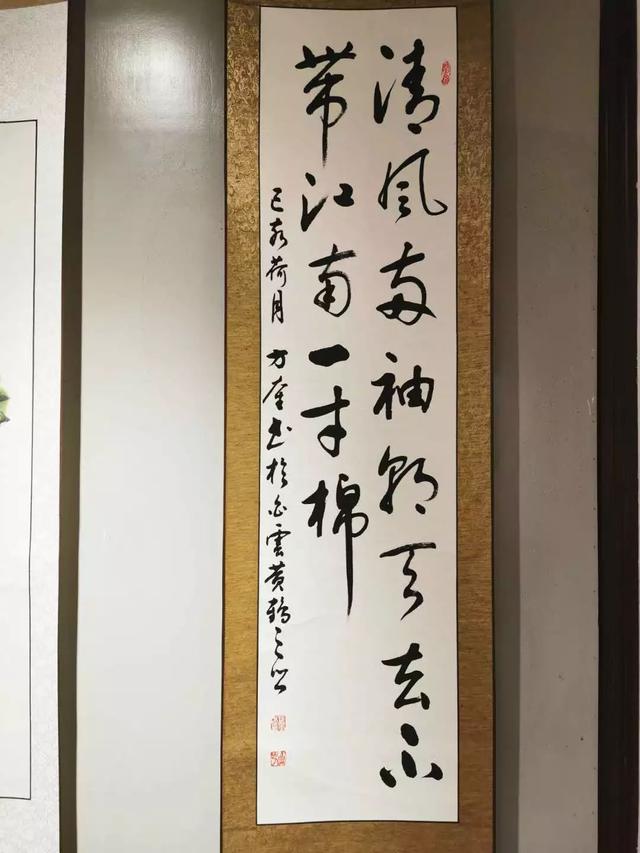 清风两袖朝天去不
带江南一寸棉
己亥荷月 方奎书於白雲黄鹤之